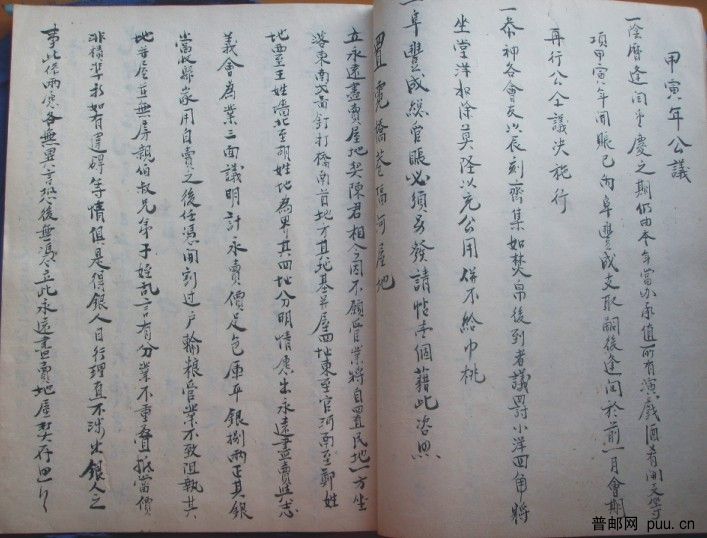 甲寅年公議
一陰曆逢閏帝慶之期仍由本年當办承值所有演戲酒肴開支等
項甲寅年閏賬已向阜豐成支取嗣後逢閏於前一月會期
再行公仝議決施行
一恭神各會友以辰刻齊集如焚帛後到者議罰小洋四角將
坐堂洋扣除莫怪以充公用併不給巾桃
一阜豐成總管賬必須另發請帖壹個藉此咨照
置霓橋巷隔河屋地
立永遠盡賣屋地契陳君相今因不願管業將自置民地一方坐
落東南弍啚釘打橋南首地方其地基并屋四址東至官河南至鄭姓
地西至王姓墻北至胡姓地為界其四址分明情愿出永遠盡賣與志
義會為業三面議明計永賣價足色庫平銀捌兩正其銀
當收歸家用自賣之後任憑開刻过户輸粮管業不致阻執其
地并屋並無房親伯叔兄弟子姪乱言有分業不重叠抵當價
非積準折如有違碍等情俱是得銀人自行理直不涉出銀人之
事此係兩愿各無異言恐後無憑立此永遠盡賣地屋契存照
普邮网 puu.cn